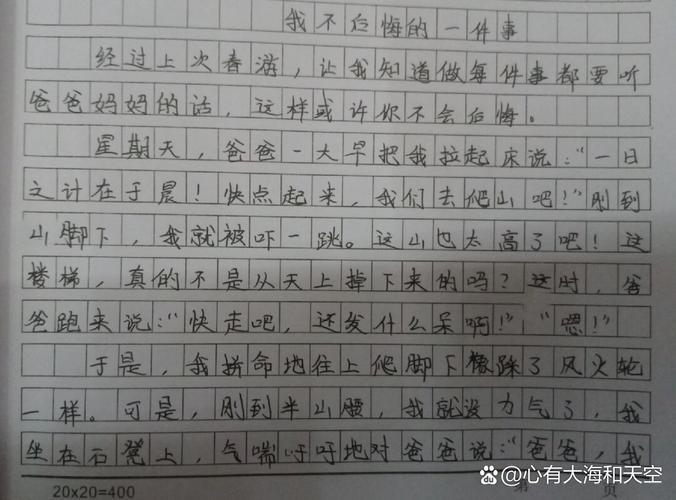 我不后悔的一件事
经过上次春游，让我知道做每件事都要听
爸爸妈妈的话，这样或许你不会后悔。
星期天，爸爸一大早把我拉起床说：“一日
之计在于晨！快点起来，我们去爬山吧！”刚到
山脚下，我就被吓一跳。这山也太高了吧！这
楼梯，真的不是从天上掉下来的吗？这时，爸
爸跑来说：“快走吧，还发什么呆啊！”“嗯！”
于是，我拼命地往上爬脚下像踩了风火轮
一样。可是，刚到半山腰，我就没力气了，我
坐在石凳上，气喘吁吁地对爸爸说：“爸爸，我
20×20=400
第
页
@心有大海和天空